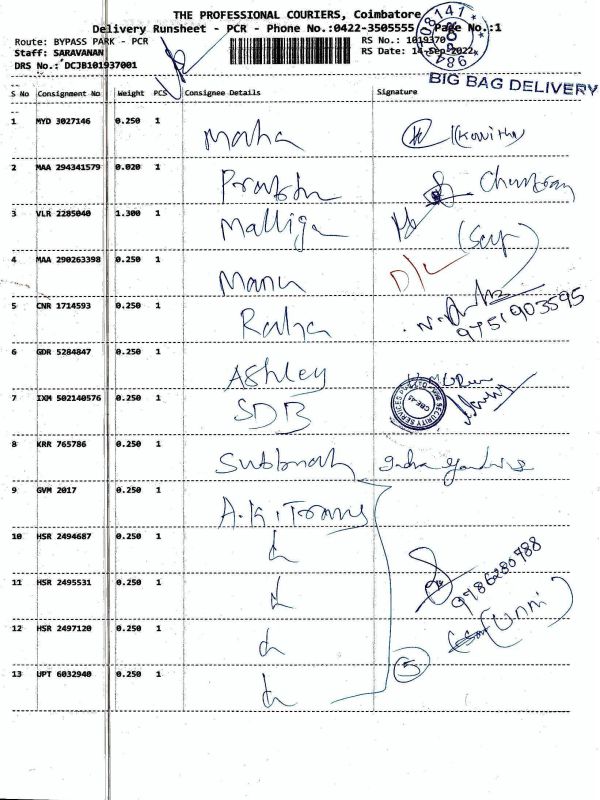 THE PROFESSIONAL COURIERS, Coimbatore
Delivery Runsheet - PCR - Phone No.:0422-3505555 Page No.:1
Route: BYPASS PARK - PCR RS No.: 1019370
Staff: SARAVANAN RS Date: 14-Sep-2022
DRS No.: DCJB101937001
BIG BAG DELIVERY
S No Consignment No Weight PCS Consignee Details Signature
1 MYD 3027146 0.250 1 Maha (Kowitha)
2 MAA 294341579 0.020 1
3 VLR 2285040 1.300 1 Malliga
4 MAA 290263398 0.250 1 Manu D/L
5 CNR 1714593 0.250 1 Radha 9751903595
6 GDR 5284847 0.250 1 Ashley
7 IXM 502140576 0.250 1 SDB
8 KRR 765786 0.250 1 Subbnath
9 GVM 2017 0.250 1 A.K. Toams
10 HSR 2494687 0.250 1
11 HSR 2495531 0.250 1 9786280988
12 HSR 2497120 0.250 1 (Unni)
13 UPT 6032940 0.250 1 5